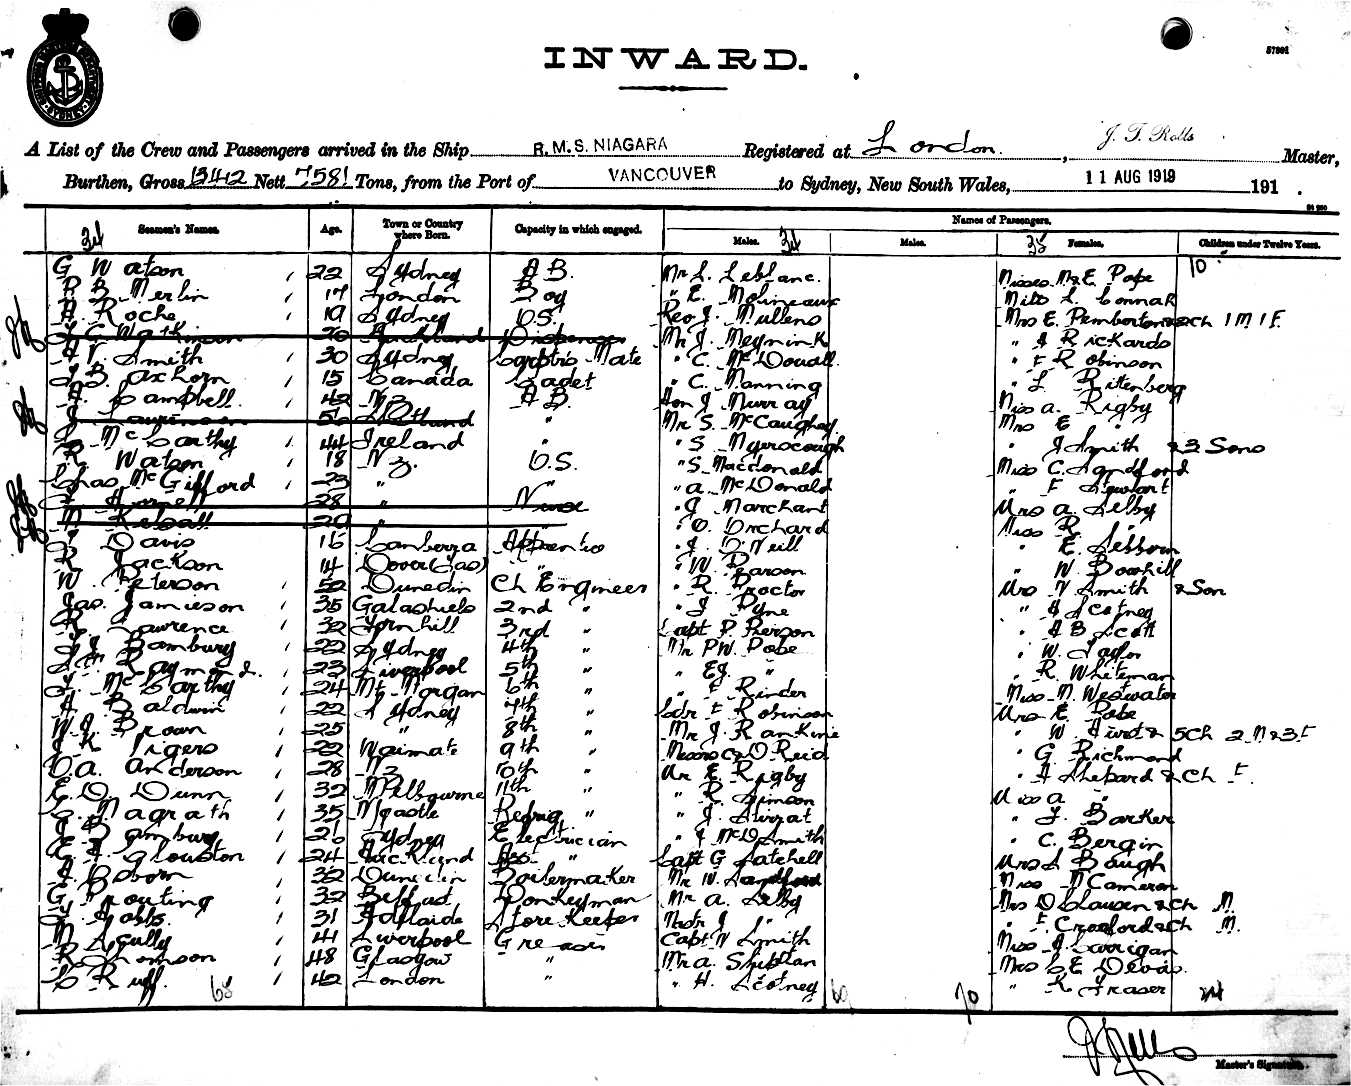 INWARD.
57901
A List of the Crew and Passengers arrived in the Ship R.M.S. NIAGARA Registered at London, J. T. Rolls Master,
Burthen, Gross 13442 Nett 7581 Tons, from the Port of VANCOUVER to Sydney, New South Wales, 11 AUG 1919 191 .
Seamen's Names. Age. Town or Country where Born. Capacity in which engaged. Names of Passengers.
34 Males. 34 Males. 38 Females. Children under Twelve Years.
10
G Watson 22 Sydney A B. Mr L. Leblanc. Misses M & E Pope
R B Merlin 17 London Boy " E. Molineaux Miss L. Connak
A. Roche 19 Sydney O.S. Rev J. Mullens Mrs E. Pemberton & 2ch 1M 1F.
C Watkinson Mr J. Meymink " A Rickards
V. Smith 30 Sydney Carptrs Mate " C. McDouall " F Robinson
B. Axhorn 15 Canada Cadet " C. Manning " L Ritenberg
A. Campbell. 42 NZ A B. Hon J Murray Miss A. Rigby
56 " Mr S. McCaughey Mrs E "
McCarthy 44 Ireland " " S Myerscough " J Smith & 3 Sons
R. Watson 18 NZ. O.S. " S. Macdonald Miss C. Sandford
Chas McGifford 23 " " " A McDonald " F Stewart
28 " Nurse " J Marchant Mrs A. Selby
M 29 " " O. Orchard Miss R.
J Davis 16 Canberra Apprentice " J. O'Neill " E. Sebborn
R. Jackson 14 Dover (Tas) " " W. Parson " W Bowhill
W. Peterson 52 Dunedin Ch Engineer " R. Proctor Mrs V Smith & Son
Jas. Jamieson 35 Galashiels 2nd " " J Pyne " A Scotney
R. Lawrence 32 Tornhill 3rd " Capt P. Pierson " A B Scott
J Bambury 22 Sydney 4th " Mr P.W. Pope " W. Taylor
Raymond. 23 Liverpool 5th " " E.J. " " R. Whiteman
McCarthy 24 Mt Morgan 6th " " F Rinder Miss M. Westwater
A Baldwin 22 Sydney 7th " F Robinson Mrs E. Pope
W. J. Brown 25 " 8th " Mr J. Rankine " W. Hurst & 5ch 2M & 3F
J K Vigers 22 Waimate 9th " Messrs C & D Reid " G Richmond
A. Anderson 28 NZ 10th " Mr E. Rigby " A Shepard & ch F.
E. O. Dunn 32 Melbourne 11th " " R. Simson Miss A "
Magrath 35 Ncastle Refrig " " J. " J. Barker
Bambury 21 Sydney Electrician " J McD Smith " C. Bergin
E. A. Clouston 24 Auckland Ass " Capt G Satchell Mrs S Baugh
A. Osborn 32 Dunedin Boilermaker Mr W. Sandford Miss M Cameron
G Pouting 32 Belfast Donkeyman Mr A. Selby Mrs O Clausen & ch M
Hobbs. 31 Adelaide Store Keeper Mstr J " " F. Crawford & ch M.
M Scully 41 Liverpool Greaser Capt V Smith Miss J Corrigan
R Thomson 48 Glasgow " Mr A. Mrs C E Devas.
C Ruff 42 London " " H. Scotney " K Fraser
68 69 70
Master's Signature.